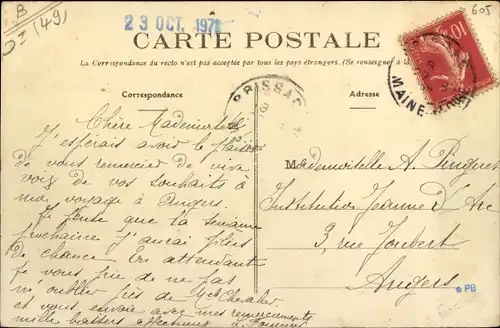 B
DI (49)
23 OCT. 1971
605
CARTE POSTALE
La Correspondance du recto n'est pas acceptée par tous les pays étrangers. (Se renseigner à la
Correspondance
Adresse
BRISSAC
MAINE-ET-LOIRE
10
Chère Mademoiselle
J'espérais avoir le plaisir
de vous remercier de vive
voix de vos souhaits à
mon voyage à Angers.
Je pense que la semaine
prochaine j'aurai plus
de chance. En attendant
je vous prie de ne pas
m'oublier près de Melle Chevalier
et vous envoie avec mes remerciements
mille baisers affectueux
Mademoiselle A. Pinguet
Institution Jeanne d'Arc
3, rue Joubert
Angers
*PB